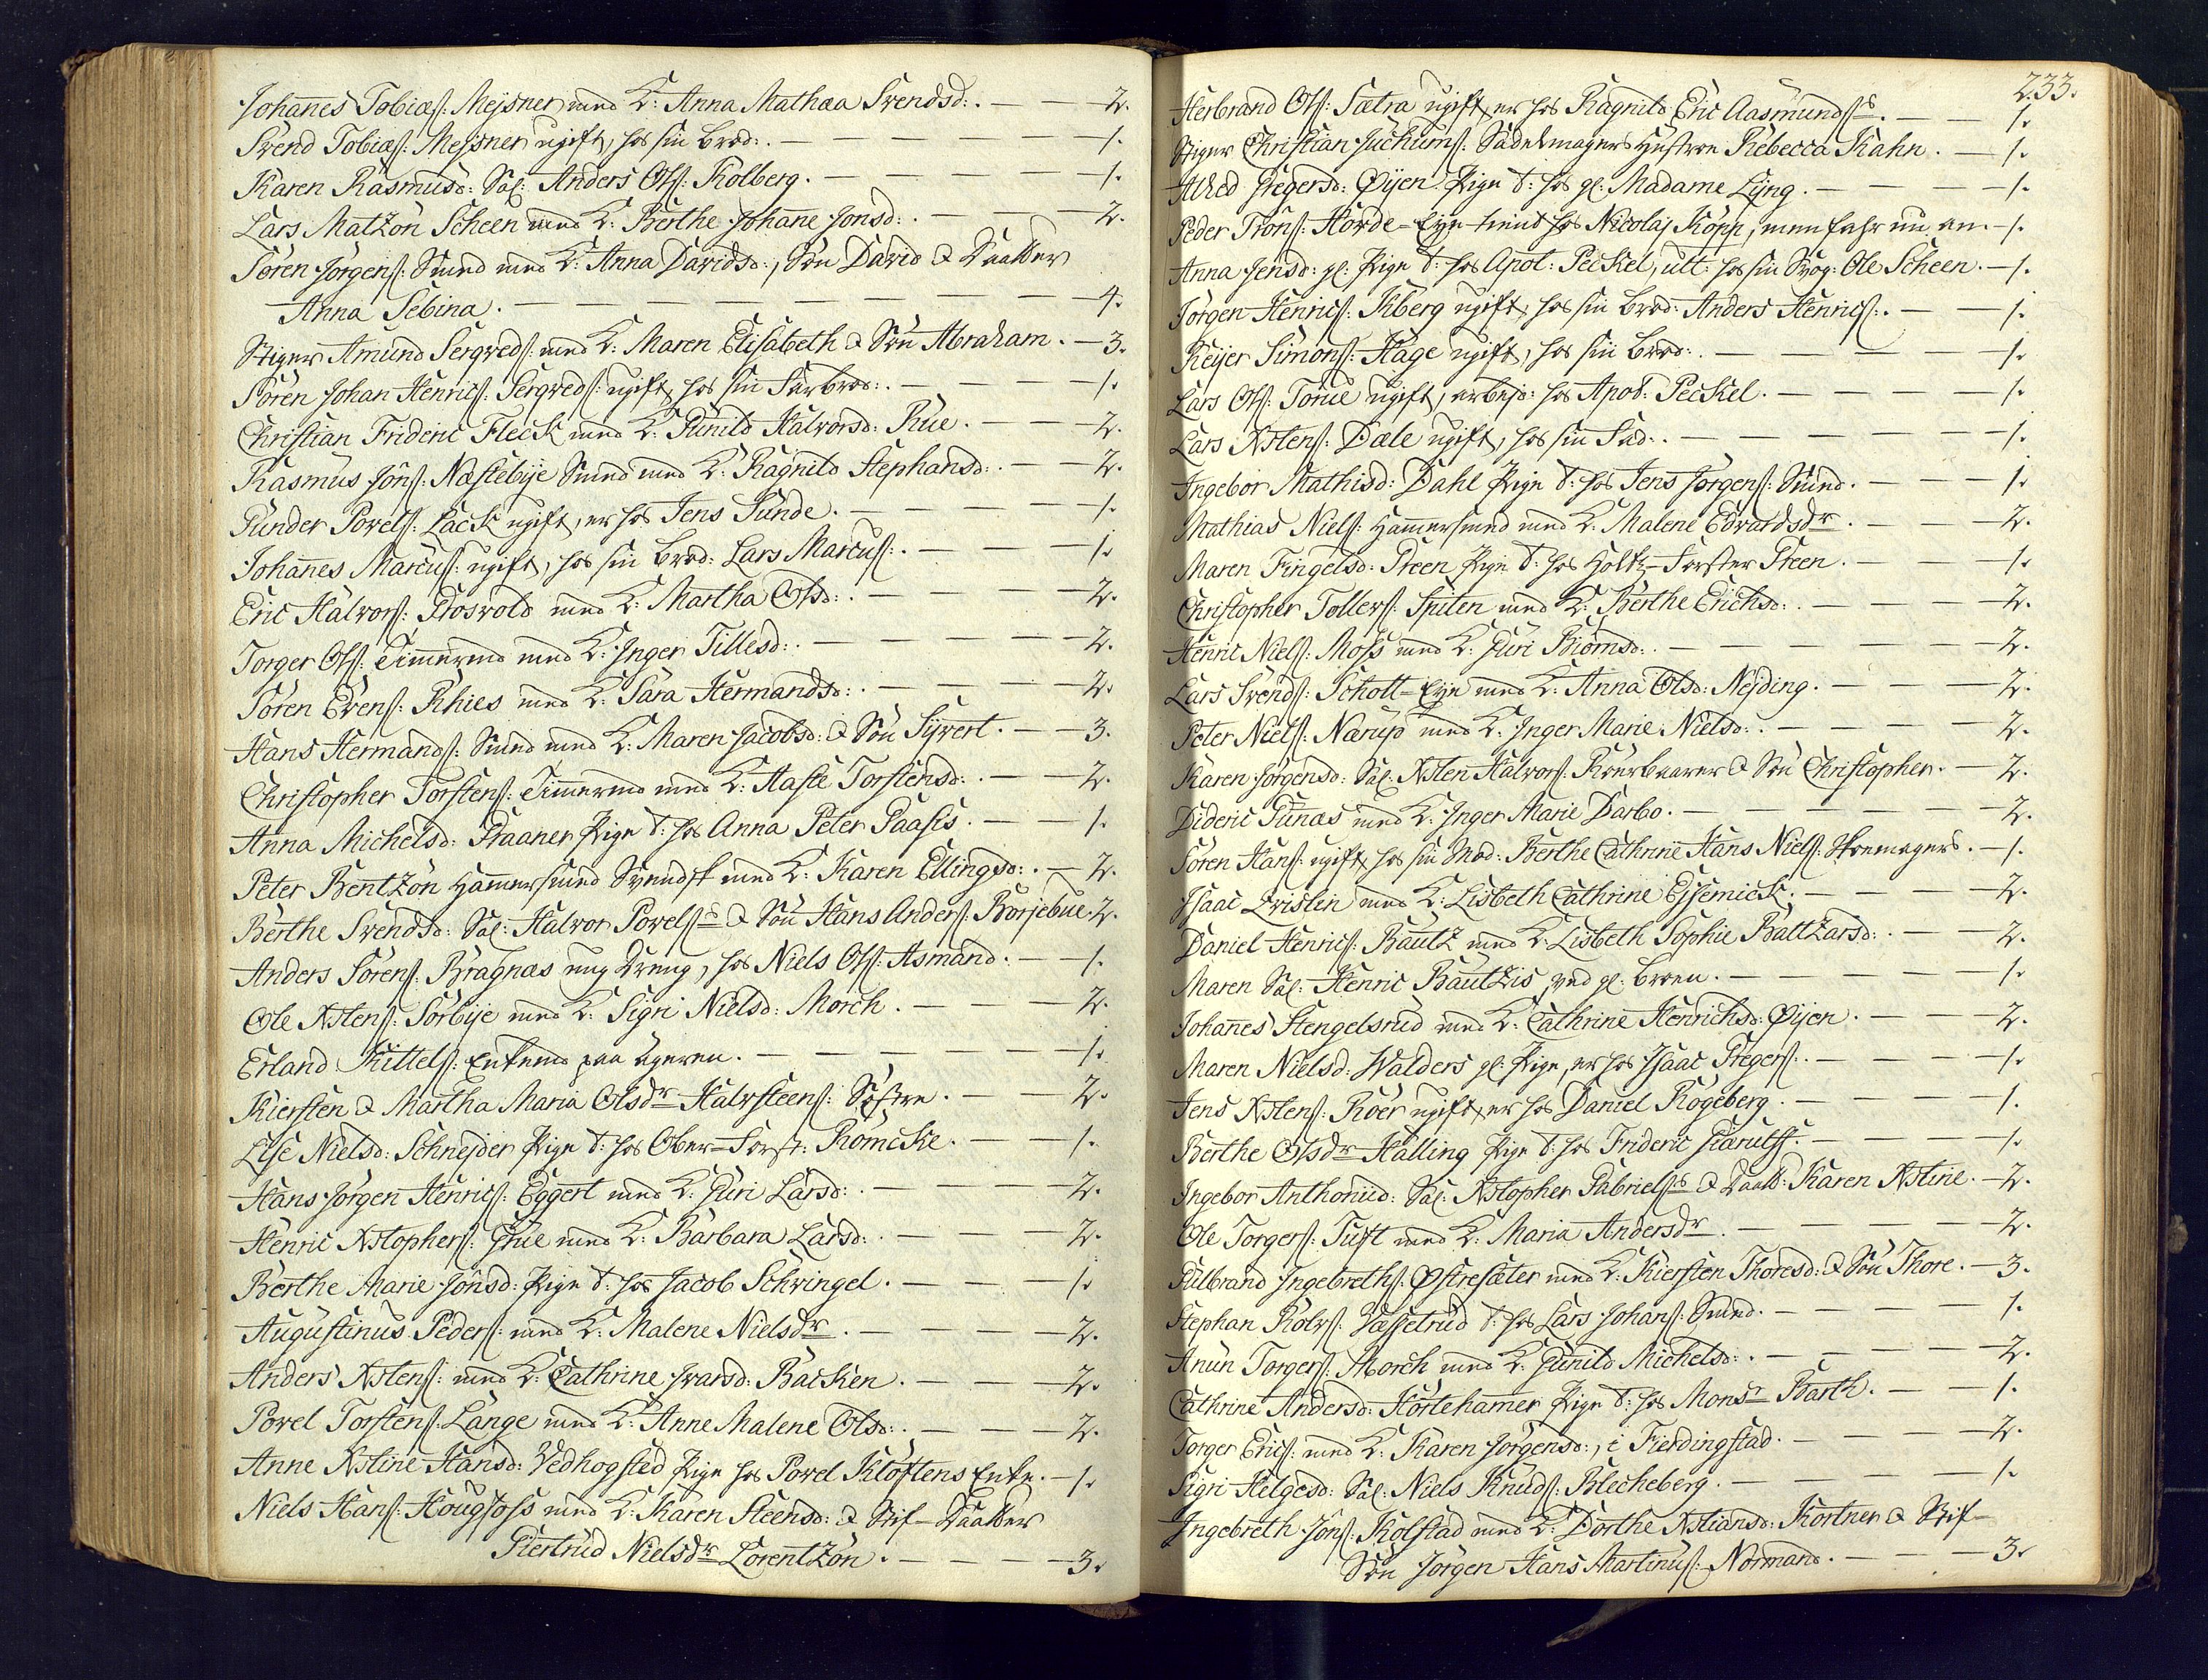 Johanes Tobiæs: Mejsner med K: Anna Mathæa Svendsd: . — — 2.
Svend Tobiæs: Mejsner ugift, hos sin brod: . — — — — 1.
Karen Rasmusd: Sal: Anders Ols: Kolberg. — — — — 1.
Lars Matzon Scheen med K: Berthe Johane Jonsd: . — — — 2.
Sören Jörgens: Smed med K: Anna Davidsd:, Sön David & Daatter
Anna Sebina. — — — — — — — — 4.
Stiger Amund Sergveds: med K: Maren Elisabeth & Sön Abraham. — 3.
Sören Johan Henrics: Sergveds: ugift, hos sin Farbrod: . — — — 1.
Christian Frideric Fleck med K: Gunild Halvorsd: Rue. — — — 2.
Rasmus Jöns: Næstebye Smed med K: Ragnild Stephansd: . — — 2.
Gunder Povels: Lack ugift, er hos Jens Funde. — — — — 1.
Johanes Marcus: ugift, hos sin brod: Lars Marcus: . — — — 1.
Eric Halvors: Prosvold med K: Martha Olsd: . — — — — 2.
Torger Ols: Timermd med K: Inger Tillesd: . — — — — — 2.
Sören Evens: Rhies med K: Sara Hermandsd: . — — — — 2.
Hans Hermands: Smed med K: Maren Jacobsd: & Sön Syvert. — — 3.
Christopher Torstens: Timermd med K: Aaste Torstensd: . — — 2.
Anna Michelsd: Praaner Pige t: hos Anna Peter Paasis. — — 1.
Peter Bentzon Hamersmed Svendsk med K: Karen Ellingsd: . — 2.
Berthe Svendsd: Sal: Halvor Povels: & Sön Hans Anders: Borjebue. 2.
Anders Sörens: Bragnæs ung Dreng, hos Niels Ols: Asmand. — — 1.
Ole Xstens: Sörbye med K: Sigri Nielsd: Morch. — — — — 2.
Erland Kittels: Enkemd paa Ageren. — — — — — 1.
Kiersten & Martha Maria Olsdr Halvsteens: Söstre. — — — 2.
Lise Nielsd: Schnejder Pige t: hos Ober-Forst: Römcke. — — — 1.
Hans Jörgen Henrics: Eggert med K: Guri Larsd: . — — — — 2.
Henric Xstophers: Grue med K: Barbara Larsd: . — — — — 2.
Berthe Marie Jönsd: Pige t: hos Jacob Schvingel. — — — — 1.
Augustinus Peders: med K: Malene Nielsdr. — — — — 2.
Anders Xstens: med K: Cathrine Ivarsd: Backen. — — — — 2.
Povel Torstens: Lange med K: Anne Malene Olsd: . — — — 2.
Anne Xstine Hansd: Vedhogsted Pige hos Povel Klöftens Enke. — 1.
Niels Hans: Hougfoss med K: Karen Steensd: & Stif-Daatter
Giertrud Nielsdr Lorentzon. — — — — 3.
233.
Herbrand Ols: Sætra ugift, er hos Ragnild Eric Aasmunds. — — 1.
Stiger Christian Juchums: Sadelmagers Hustroe Rebecca Kahn. — 1.
Alhed Gregersd: Øijen Pige t: hos gl: Madame Lyng. — — — 1.
Peder Trons: Horde-Eye tient hos Nicolaj Köpp, men fahr nu an. — 1.
Anna Jensd: gl: Pige t: hos Apot: Peckel, ult: hos sin Svog: Ole Scheen. — 1.
Jörgen Henrics: Kberg ugift, hos sin brod: Anders Henrics: . — — 1.
Reijer Simons: Hage ugift, hos sin brod: . — — — — — 1.
Lars Ols: Torüe ugift, arbejd: hos Apot: Peckel. — — — — 1.
Lars Xstens: Dæle ugift, hos sin Fad: . — — — — — 1.
Ingebor Mathisd: Dahl Pige t: hos Jens Jörgens: Smed. — — — 1.
Mathias Niels: Hamersmed med K: Malene Edvardsdr. — — — 2.
Maren Fingelsd: Steen Pige t: hos Holtz-Forster Steen. — — — 1.
Christopher Tollers: Spiten med K: Berthe Erichsd: . — — — 2.
Henric Niels: Moss med K: Guri Biörnsd: . — — — — — 2.
Lars Svends: Schott-Eye med K: Anna Olsd: Nejding. — — — 2.
Peter Niels: Nærup med K: Inger Marie Nielsd: . — — — — 2.
Karen Jörgensd: Sal: Xsten Halvors: Kourbærer & Sön Christopher. — 2.
Dideric Funæs med K: Inger Marie Darbo. — — — — — 2.
Sören Hans: ugift, hos sin Mod: Berthe Cathrine Hans Niels: Skomagers. — 1.
Isaac Qvislin med K: Lisbeth Cathrine Ejsemick. — — — — 2.
Daniel Henrics: Bautz med K: Lisbeth Sophie Baltzarsd: . — — 2.
Maren Sal: Henric Bautzis, ved gl: broen. — — — — — 1.
Johanes Stengelsrud med K: Cathrine Henrichsd: Øijen. — — — 2.
Maren Nielsd: Walders gl: Pige, er hos Isaac Gregers: . — — — 1.
Jens Xstens: Roer ugift, er hos Daniel Rogeberg. — — — — 1.
Berthe Olsdr Halling Pige t: hos Frideric Giærulff. — — — — 1.
Ingebor Anthoniid: Sal: Xstopher Gabriels & Daatt: Karen Xstine. — 2.
Ole Torgers: Tuft med K: Maria Andersdr. — — — — — 2.
Gulbrand Ingebreths: Østresæter med K: Kiersten Thoresd: & Sön Thore. — 3.
Stephan Rolvs: Væssetrud t: hos Lars Johans: Smed. — — — — 1.
Anun Torgers: Morch med K: Gunild Michelsd: . — — — — 2.
Cathrine Andersd: Hörtehamer Pige t: hos Monsr Barth. — — — 1.
Torger Erics: med K: Karen Jörgensd:, i Fierdingstad. — — — 2.
Sigri Helgesd: Sal: Niels Knuds: Blecheberg. — — — — — 1.
Ingebreth Jöns: Kolstad med K: Dorthe Xstiansd: Kortner & Stif-
Sön Jörgen Hans Martinus: Normand. — — — 3.